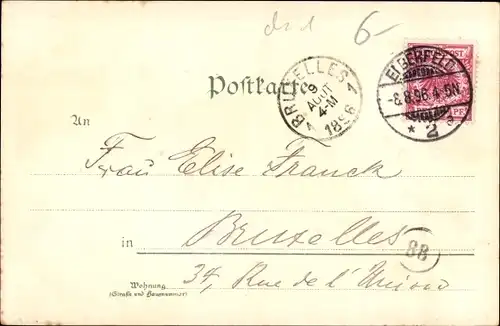 6-
BRUXELLES 1
9
AOUT
4-M
1896
ELBERFELD
-8.8.96.4-5N
* 2 a
Postkarte
An
Frau Elise Franck
in Bruxelles
BB
34, Rue de l'Union
Wohnung
(Straße und Hausnummer)